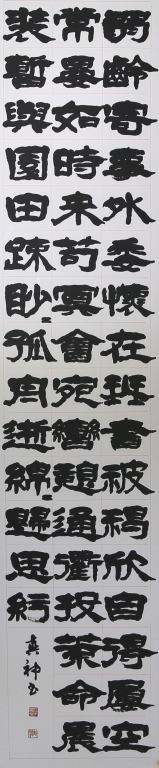 弱齡寄事外委懷在琴書被褐欣自得屢空
常晏如時来苟冥會宛轡憩通衢投策命晨
裝暫與園田疎眇〻孤舟逝綿〻歸思紆